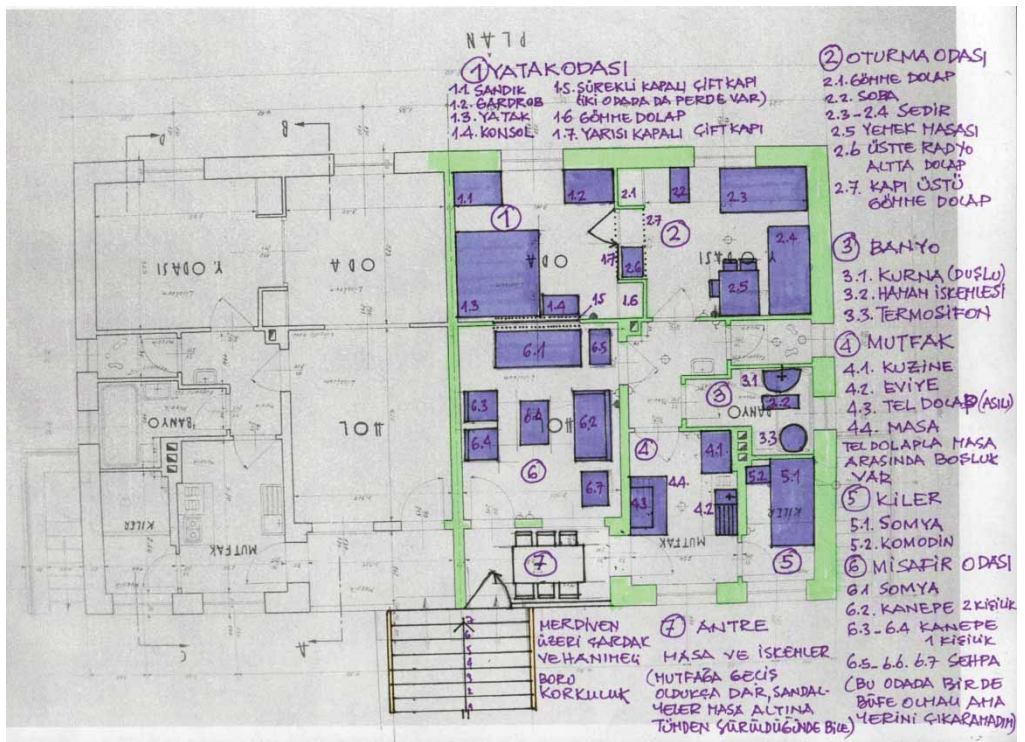 PLÂN
① YATAK ODASI
1.1. SANDIK
1.2. GARDROB
1.3. YATAK
1.4. KONSOL
1.5. SÜREKLİ KAPALI ÇİFT KAPI
(İKİ ODADA DA PERDE VAR)
1.6 GÖMME DOLAP
1.7. YARISI KAPALI ÇİFT KAPI
② OTURMA ODASI
2.1. GÖMME DOLAP
2.2. SOBA
2.3-2.4 SEDİR
2.5 YEMEK MASASI
2.6 ÜSTTE RADYO
ALTTA DOLAP
2.7. KAPI ÜSTÜ
GÖMME DOLAP
③ BANYO
3.1. KURNA (DUŞLU)
3.2. HAMAM İSKEMLESİ
3.3. TERMOSİFON
④ MUTFAK
4.1. KUZİNE
4.2. EVİYE
4.3. TEL DOLAP (ASILI)
4.4. MASA
TEL DOLAPLA MASA
ARASINDA BOŞLUK
VAR
⑤ KİLER
5.1. SOMYA
5.2. KOMODİN
⑥ MİSAFİR ODASI
6.1 SOMYA
6.2. KANEPE 2 KİŞİLİK
6.3-6.4 KANEPE
1 KİŞİLİK
6.5-6.6. 6.7 SEHPA
(BU ODADA BİR DE
BÜFE OLMALI AMA
YERİNİ ÇIKARAMADIM)
⑦ ANTRE
MASA VE İSKEMLER
(MUTFAĞA GEÇİŞ
OLDUKÇA DAR, SANDAL-
YELER MASA ALTINA
TÜMDEN SÜRÜLDÜĞÜNDE BİLE)
MERDİVEN
ÜZERİ ÇARDAK
VE HANIMELİ
BORU
KORKULUK
D
B
1.1
1.2
2.1
2.2
2.3
①
2.7
②
2.4
Y. ODASI
ODA
ODA
1.7
2.6
Y. ODASI
2.5
1.3
1.4
1.5
1.6
6.1
6.5
3.1
③
BANYO
2.2
6.3
6.4
6.2
BANYO
HOL
HOL
④
4.1
3.3
⑥
6.7
4.4.
5.2
5.1
4.3
4.2
KİLER
KİLER
MUTFAK
MUTFAK
⑦
⑤
C
A